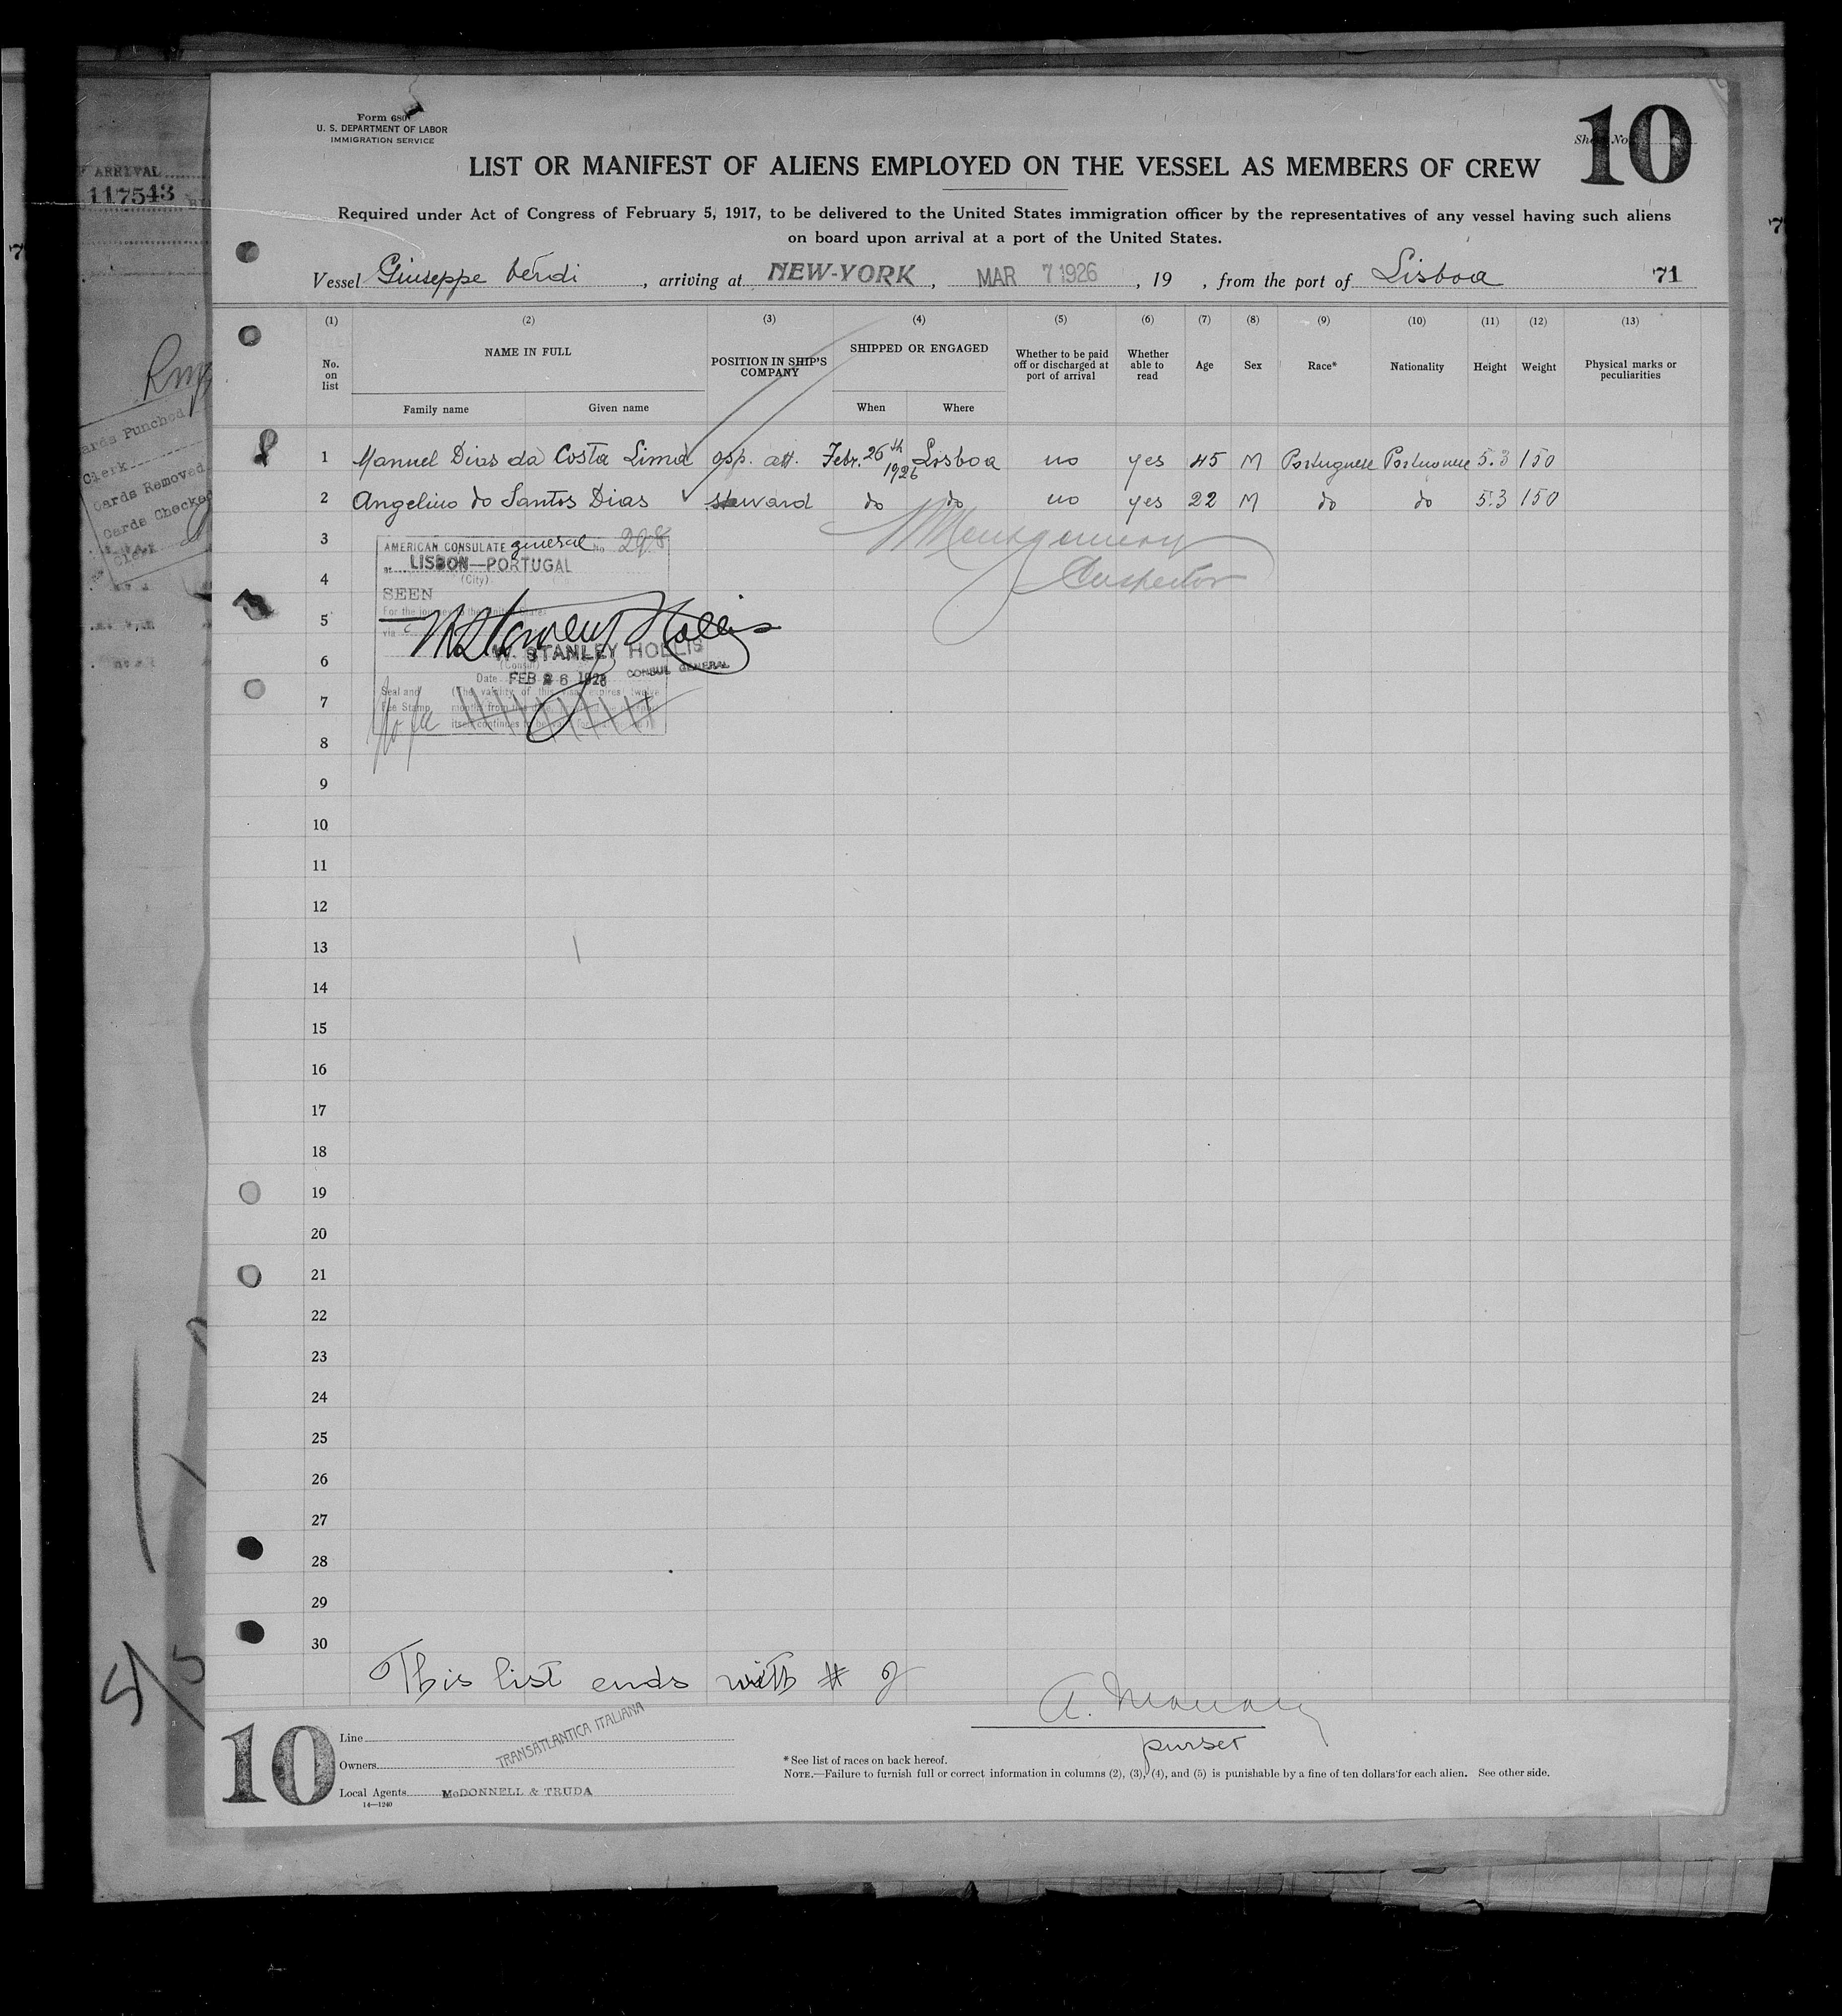 Form 680
U. S. DEPARTMENT OF LABOR
IMMIGRATION SERVICE
Sheet No.
10
LIST OR MANIFEST OF ALIENS EMPLOYED ON THE VESSEL AS MEMBERS OF CREW
Required under Act of Congress of February 5, 1917, to be delivered to the United States immigration officer by the representatives of any vessel having such aliens
on board upon arrival at a port of the United States.
Vessel Giuseppe Verdi, arriving at NEW-YORK, MAR 7 1926, 19 , from the port of Lisboa 71
(1) (2) (3) (4) (5) (6) (7) (8) (9) (10) (11) (12) (13)
No. on list NAME IN FULL POSITION IN SHIP'S COMPANY SHIPPED OR ENGAGED Whether to be paid off or discharged at port of arrival Whether able to read Age Sex Race* Nationality Height Weight Physical marks or peculiarities
Family name Given name When Where
1 Manuel Dias da Costa Lima osp. att. Febr. 26th 1926 Lisboa no yes 45 M Portuguese Portuguese 5.3 150
2 Angelino do Santos Dias steward do do no yes 22 M do do 5.3 150
3
AMERICAN CONSULATE general No 298
at LISBON—PORTUGAL
(City)
Montgomery
Inspector
4
SEEN
For the journey to the United States
via
5
W Stanley Hollis
W. STANLEY HOLLIS
(Consul) CONSUL GENERAL
6
Date FEB 26 1926
Seal and
Fee Stamp
(The validity of this visa expires twelve
7
No fee
8
9
10
11
12
13
14
15
16
17
18
19
20
21
22
23
24
25
26
27
28
29
30
This list ends with # 2
purser
10
Line
TRANSATLANTICA ITALIANA
Owners
Local Agents McDONNELL & TRUDA
14—1240
*See list of races on back hereof.
NOTE.—Failure to furnish full or correct information in columns (2), (3), (4), and (5) is punishable by a fine of ten dollars for each alien. See other side.
ARRIVAL
117543
Cards Punched
Clerk
Cards Removed
Cards Checked
Clerk